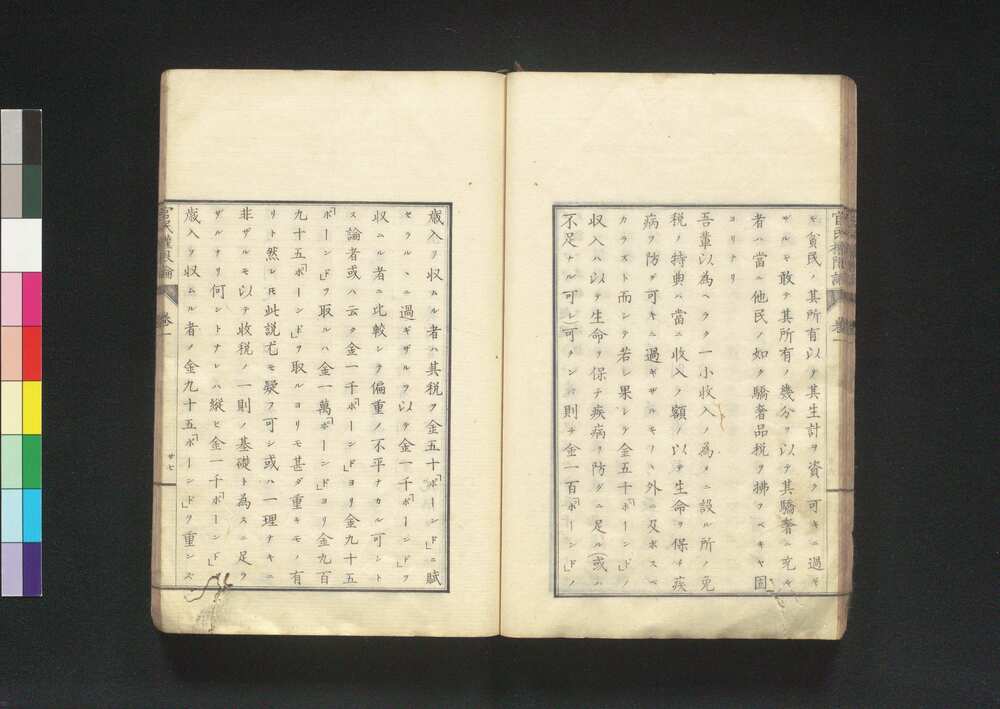 モ貧民ノ其所有以テ其生計ヲ資ク可キニ過ギ
ザルモ敢テ其所有ノ幾分ヲ以テ其驕奢ニ充ル
者ハ當ニ他民ノ如ク驕奢品税ヲ拂フベキヤ固
ヨリナリ
吾輩以為ヘラク一小收入ノ為メニ設ル所ノ免
税ノ特典ハ當ニ收入ノ額ノ以テ生命ヲ保チ疾
病ヲ防グ可キニ過ギザルモノヽ外ニ及ボスベ
カラスト而シテ若シ果シテ金五十「ポーンド」ノ
收入ハ以テ生命ヲ保チ疾病ヲ防グニ足ル(或ハ
不足ナル可シ)可クンバ則チ金一百「ポーンド」ノ
歳入ヲ收ムル者ハ其税ヲ金五十「ポーンド」ニ賦
セラルヽニ過ギザルヲ以テ金一千「ポーンド」ヲ
收ムル者ニ比較シテ偏重ノ不平ナカル可シト
ス論者或ハ云ク金一千「ポーンド」ヨリ金九十五
「ポーンド」ヲ取ルハ金一萬「ポーンド」ヨリ金九百
九十五「ポーンド」ヲ取ルヨリモ甚ダ重キモノ有
リト然レ𪜈此説尤モ疑フ可シ或ハ一理ナキニ
非ザルモ以テ收税ノ一則ノ基礎ト為スニ足ラ
ザルナリ何ントナレハ縦ヒ金一千「ポーンド」ノ
歳入ヲ收ムル者ノ金九十五「ポーンド」ヲ重シズ
官民權限論
卷一
廿七